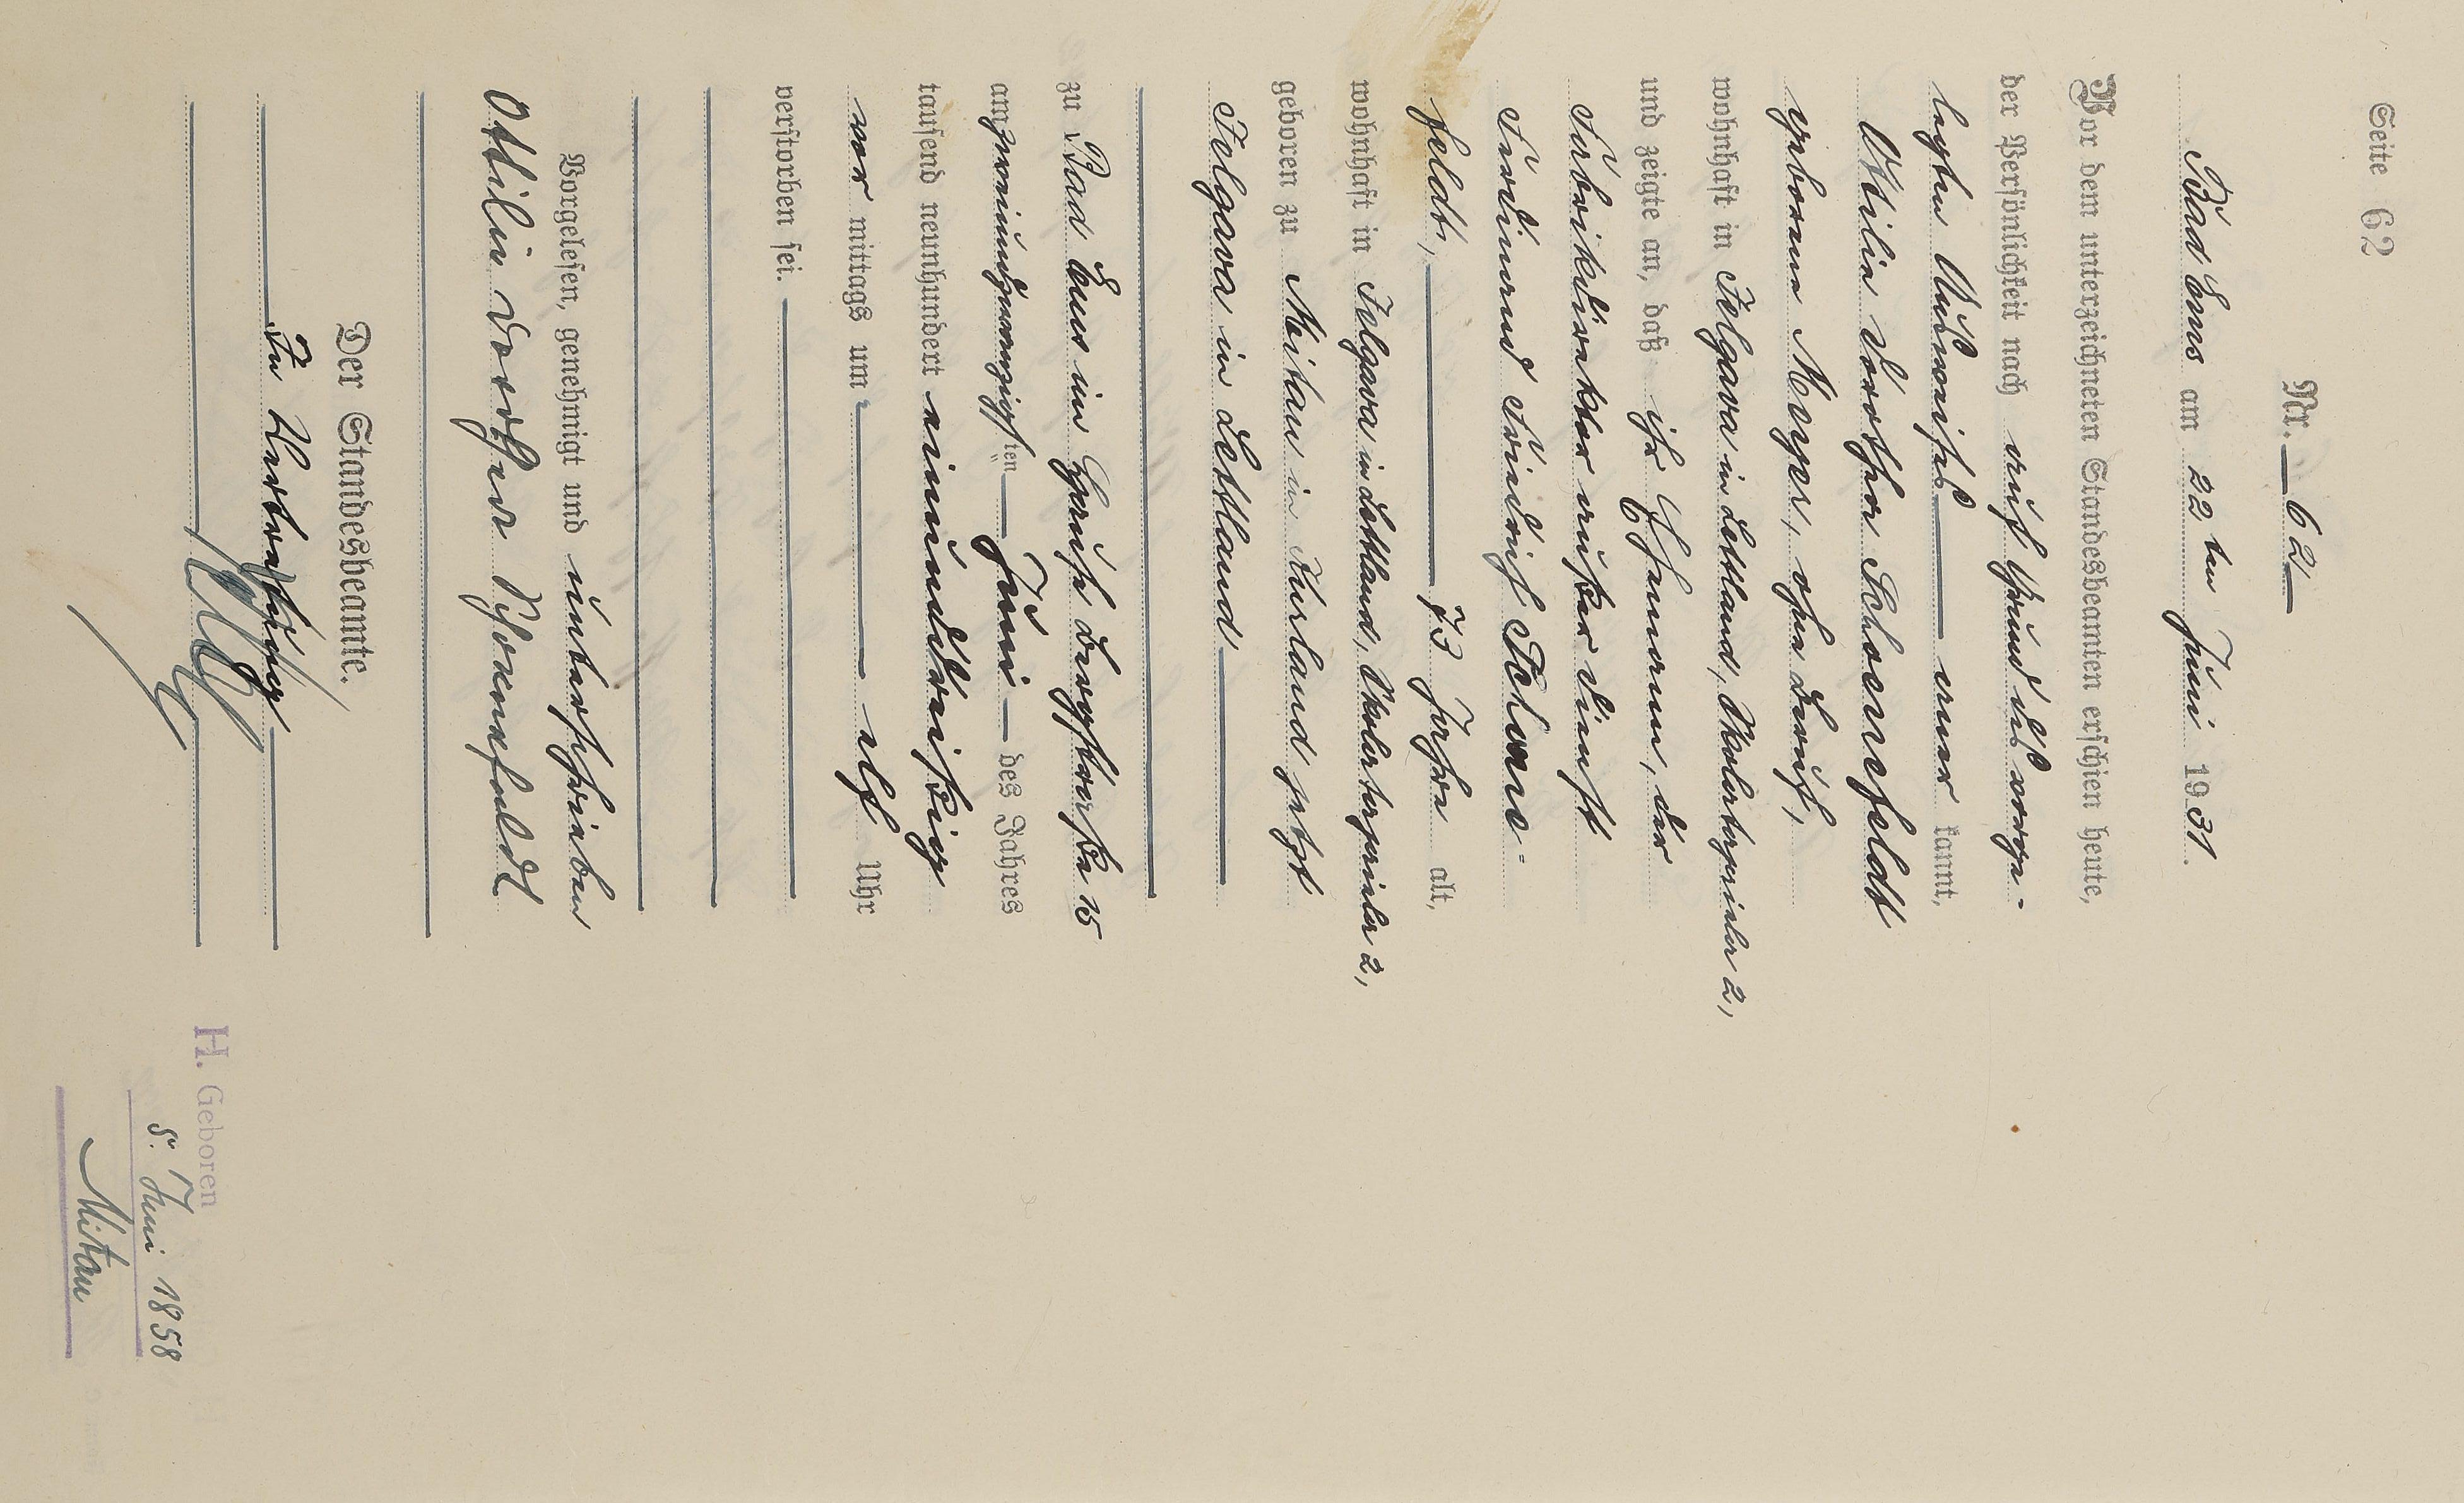 Seite 62
Nr. 62
Bad Ems am 22ten Juni 1931.
Vor dem unterzeichneten Standesbeamten erschien heute,
der Persönlichkeit nach auf Grund des vorge-
legten Ausweises aner kannt,
Otilie Dorothea Schoenfeldt
geborene Meyer, ohne Beruf,
wohnhaft in Jelgava in Lettland, 2,
und zeigte an, daß ihr Ehemann, der
Fabrikdirektor außer Dienst
Ferdinand Friedrich Schoen-
feldt, 73 Jahre alt,
wohnhaft in Jelgava in Lettland, 2,
geboren zu Mitau in Kurland jetzt
Jelgava in Lettland
zu Bad Ems im Hause 15
am zweiundzwanzigsten Juni des Jahres
tausend neunhundert einunddreißig
vor mittags um elf Uhr
verstorben sei.
Vorgelesen, genehmigt und unterschrieben
Ottilie Dorothea Schoenfeldt
Der Standesbeamte.
In Vertretung
H. Geboren
5. Juni 1858
Mitau